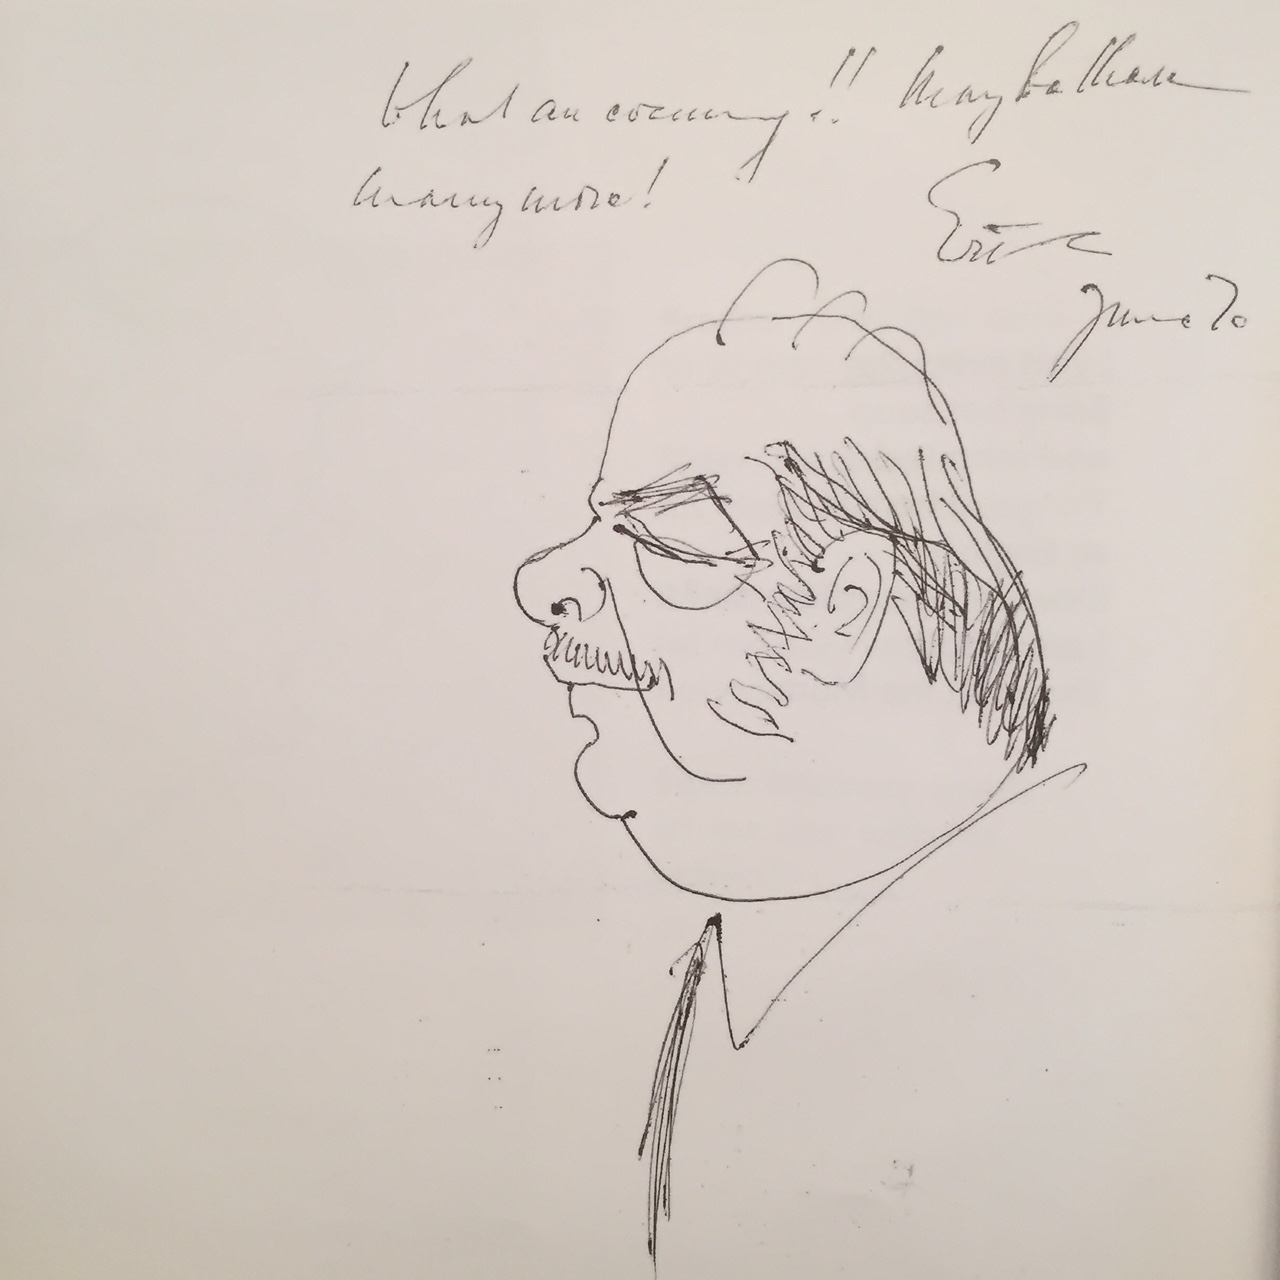 What an evening!! May be there
many more!
Eric
June 70